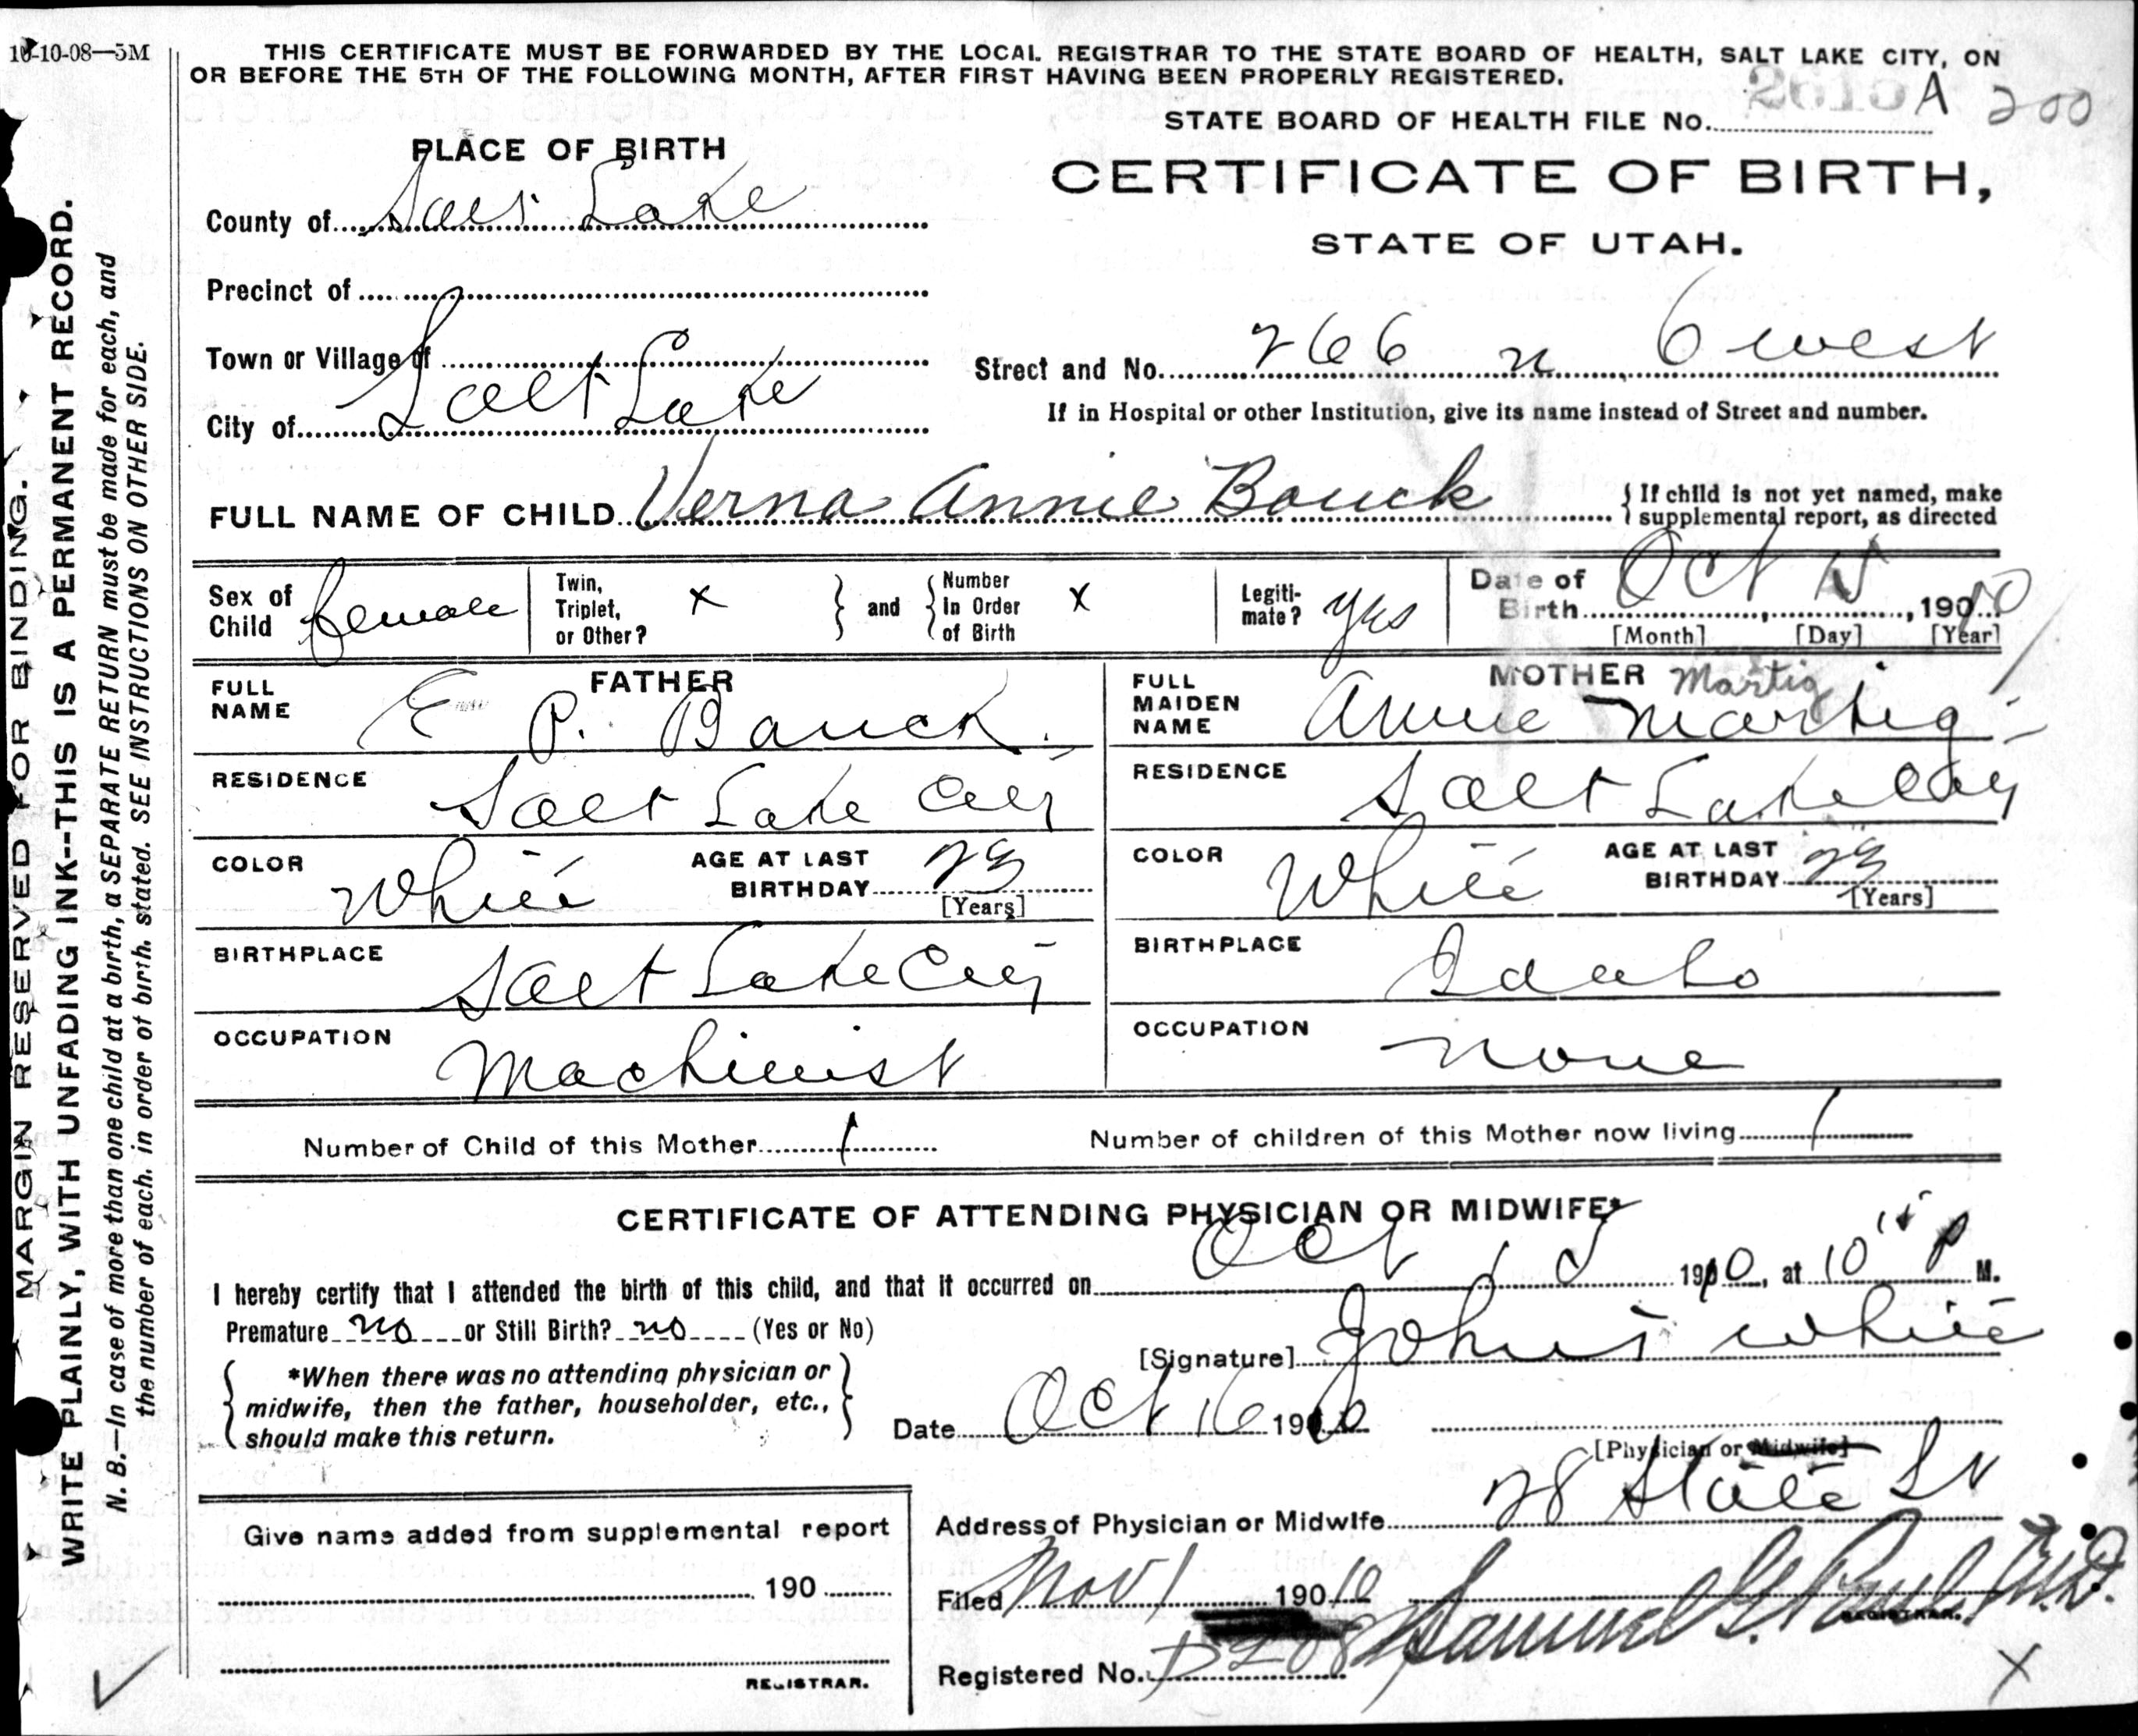 10-10-08—5M
THIS CERTIFICATE MUST BE FORWARDED BY THE LOCAL REGISTRAR TO THE STATE BOARD OF HEALTH, SALT LAKE CITY, ON
OR BEFORE THE 5TH OF THE FOLLOWING MONTH, AFTER FIRST HAVING BEEN PROPERLY REGISTERED.
STATE BOARD OF HEALTH FILE No. A 200
PLACE OF BIRTH
CERTIFICATE OF BIRTH,
STATE OF UTAH.
County of Salt Lake
Precinct of
Town or Village of
City of Salt Lake
Street and No. 266 n 6 west
If in Hospital or other Institution, give its name instead of Street and number.
FULL NAME OF CHILD Verna Annie Bouck
{ If child is not yet named, make
supplemental report, as directed
Sex of Child female
Twin, Triplet, or Other? x
} and { Number In Order of Birth x
Legiti-mate? yes
Date of Birth Oct 15, 1910
[Month] [Day] [Year]
FATHER
FULL NAME E P. Bauck.
RESIDENCE Salt Lake City
COLOR White
AGE AT LAST BIRTHDAY 23
[Years]
BIRTHPLACE Salt Lake City
OCCUPATION Machinist
MOTHER Martig
FULL MAIDEN NAME Annie Martig
RESIDENCE Salt Lake City
COLOR White
AGE AT LAST BIRTHDAY 23
[Years]
BIRTHPLACE Idaho
OCCUPATION none
Number of Child of this Mother 1
Number of children of this Mother now living 1
CERTIFICATE OF ATTENDING PHYSICIAN OR MIDWIFE*
I hereby certify that I attended the birth of this child, and that it occurred on Oct 15 1910, at 10 15 P M.
Premature no or Still Birth? no (Yes or No)
[Signature] White
{ *When there was no attending physician or
midwife, then the father, householder, etc.,
should make this return. }
Date Oct 16 1910
[Physician or Midwife]
Address of Physician or Midwife 28 State St
Give name added from supplemental report
190
REGISTRAR.
Filed Nov 1 1910
Samuel G. Paul. M.D.
REGISTRAR.
Registered No. D208
X
MARGIN RESERVED FOR BINDING.
WRITE PLAINLY, WITH UNFADING INK--THIS IS A PERMANENT RECORD.
N. B.—In case of more than one child at a birth, a SEPARATE RETURN must be made for each, and
the number of each. in order of birth. stated. SEE INSTRUCTIONS ON OTHER SIDE.